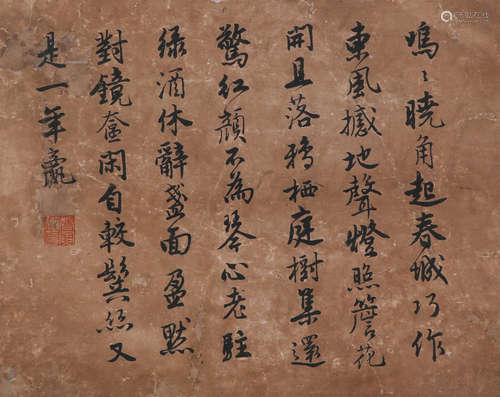 嗚〻曉角起春城巧作
東風撼地聲燈照簷花
開且落鴉栖庭樹集還
驚紅顏不為琴心老駐
綠酒休辭盞面盈默
對鏡奩閑自較鬓絲又
是一年贏